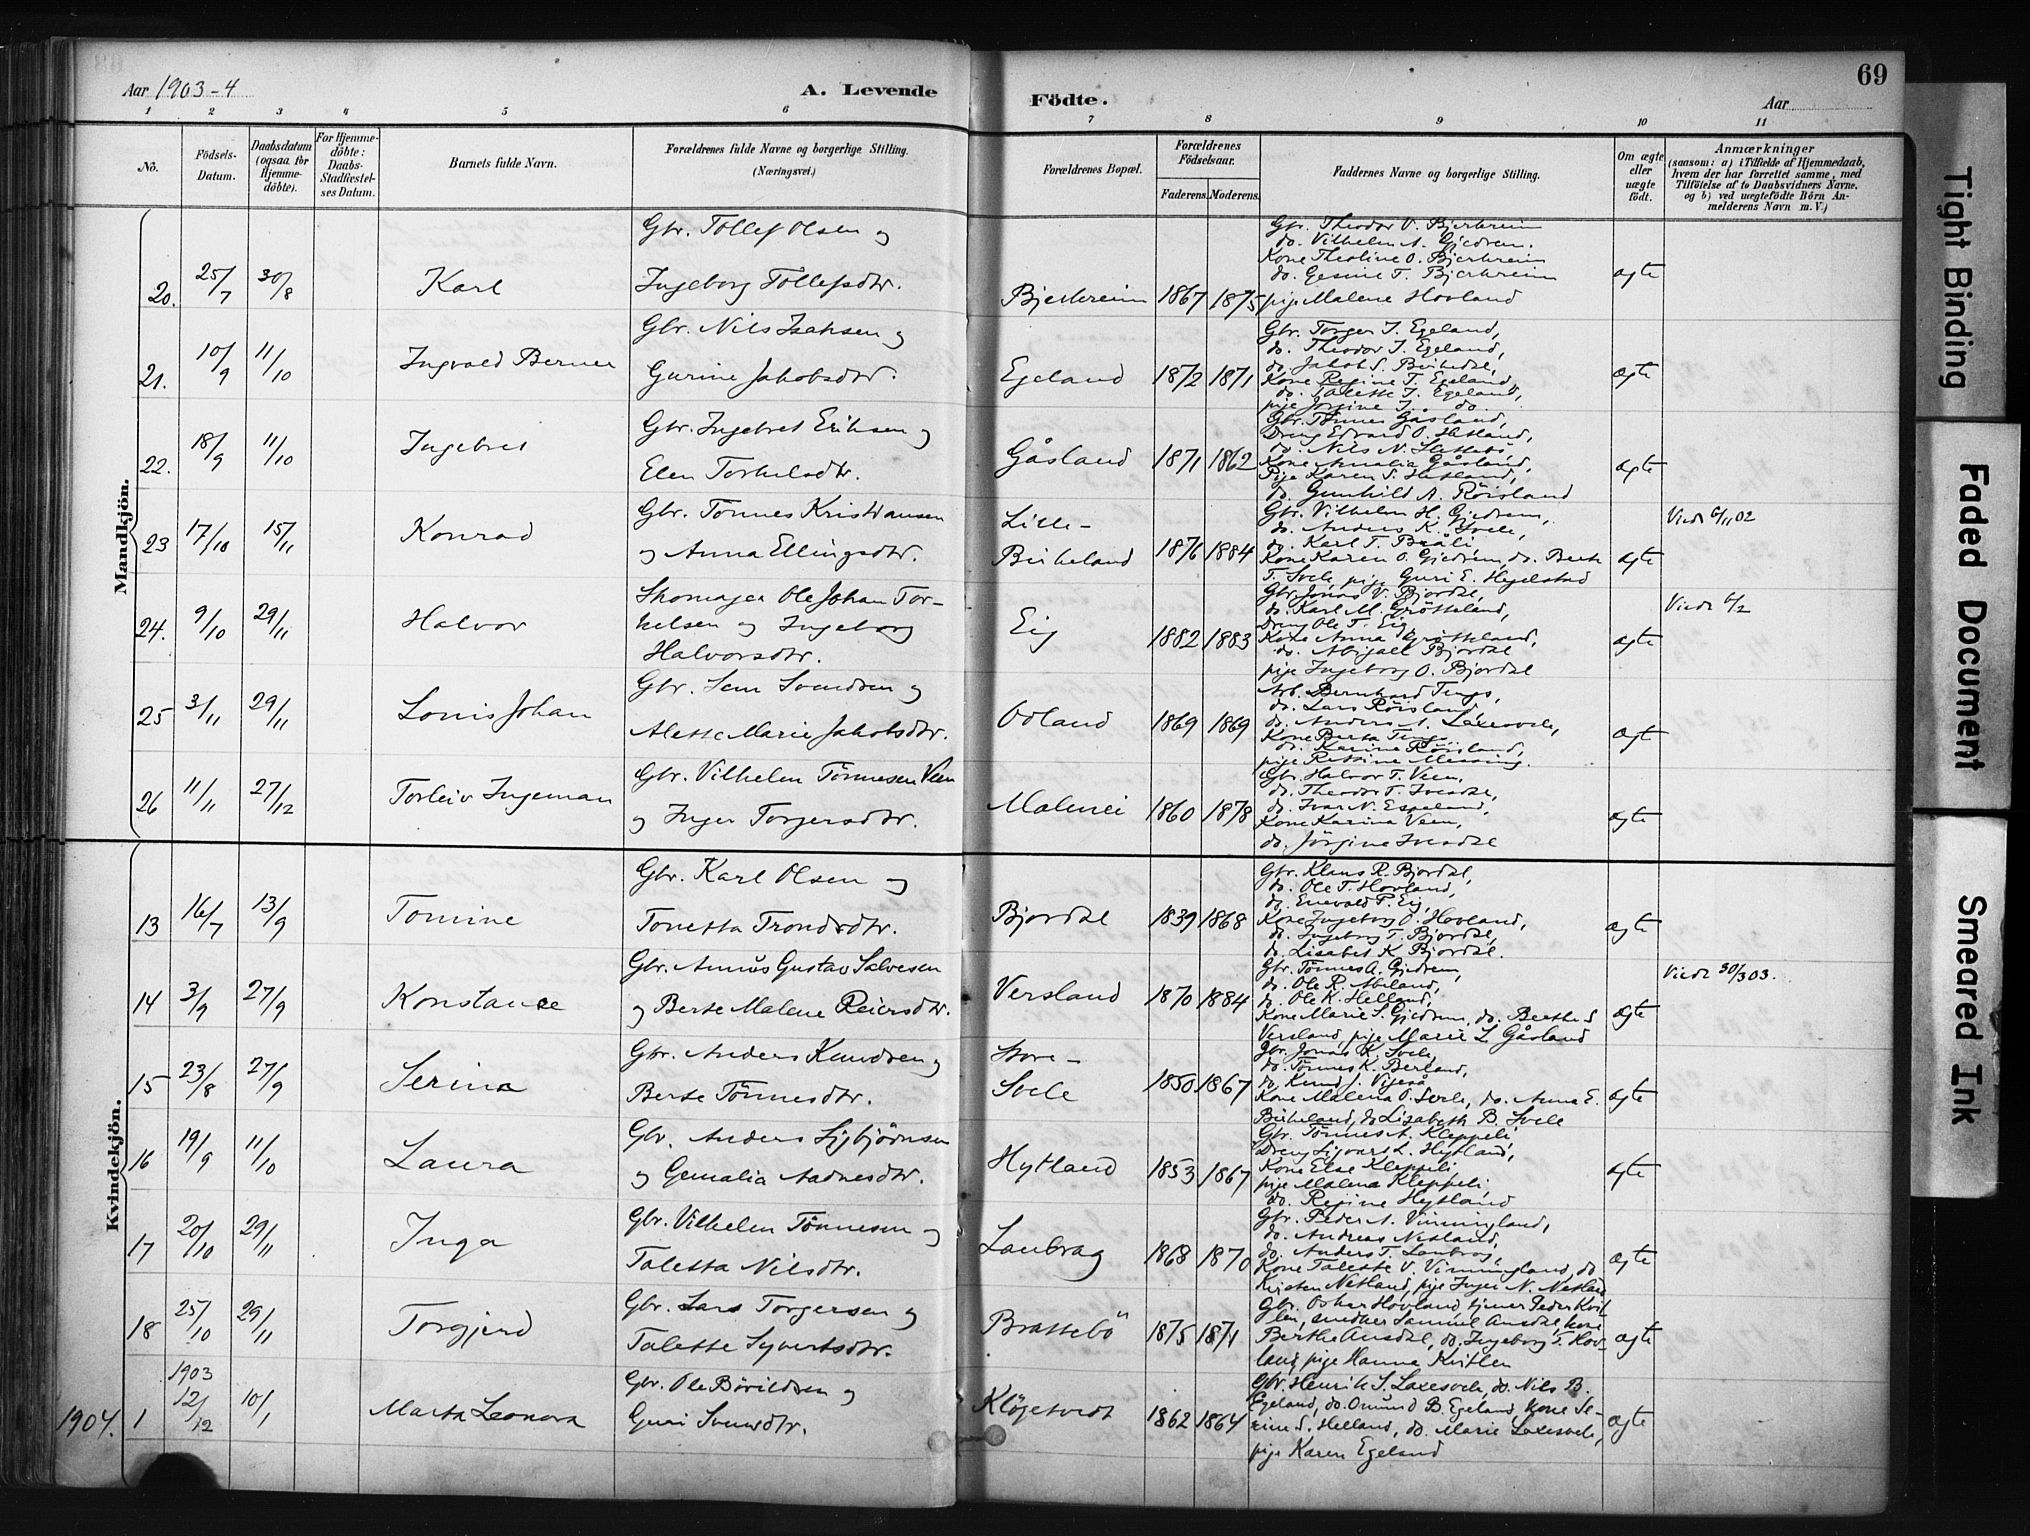 Aar 1903-4
A. Levende
Födte.
Aar
69
1 2 3 4 5 6 7 8 9 10 11
No.
Födsels-
Datum.
Daabsdatum
(ogsaa for
Hjemme-
döbte).
For Hjemme-
döbte:
Daabs-
Stadfæstel-
ses Datum.
Barnets fulde Navn.
Forældrenes fulde Navne og borgerlige Stilling.
(Næringsvei.)
Forældrenes Bopæl.
Forældrenes
Födselsaar.
Faderens. Moderens.
Faddernes Navne og borgerlige Stilling.
Om ægte
eller
uægte
födt.
Anmærkninger
(saasom: a) i Tilfælde af Hjemmedaab,
hvem der har forrettet samme, med
Tilföielse af to Daabsvidners Navne.
og b) ved uægtefödte Börn An-
melderens Navn m. V.)
Mandkjön.
20. 25/7 30/8 Karl
Gbr. Tollef Olsen og
Ingeborg Tollefsdtr.
Bjerkreim 1867 1875
Gbr. Theodor V. Bjerkreim
do. Vilhelm A. Gjedrem.
Kone Theoline O. Bjerkreim
do. Gesine T. Bjerkreim
pige Malene Hovland
ægte
21. 10/9 11/10 Ingvald Berner
Gbr. Nils Isaksen og
Gurine Jakobsdtr.
Egeland 1872 1871
Gbr. Torger J. Egeland,
do. Theodor J. Egeland,
do. Jakob S. Birkedal,
Kone Regine T. Egeland,
do. Talette J. Egeland,
pige Jorgine J. do.
ægte
22. 18/9 11/10 Ingebret
Gbr. Ingebret Eriksen og
Elen Torkelsdtr.
Gåsland 1871 1862
Gbr. Tönnes Gåsland,
Dreng Edvard O. Hetland,
do. Nils N.
Kone Amalia Gåsland,
Pige Karen S. Hetland,
do. Gunhild A. Röisland
ægte
23 17/10 15/11 Konrad
Gbr. Tönnes Kristiansen
og Anna Ellingsdtr.
Lille-
Birkeland 1876 1884
Gbr. Vilhelm H. Gjedrem,
do. Anders K. Svele,
do. Karl T. Bråli
Kone Karen O. Gjedrem, do. Berte
T. Svele, pige Guri E. Hegelstad
ægte
Viede 6/11 02
24. 9/10 29/11 Halvor
Skomager Ole Johan Tor-
kelsen og Ingeborg
Halvorsdtr.
Eig 1882 1883
Gbr. Jonas V. Bjordal,
do. Karl M. Grötteland,
Dreng Ole T. Eig,
Kone Anna Grötteland,
do. Abigael Bjordal
pige Ingeborg O. Bjordal
ægte
Viede 6/2
25 3/11 29/11 Louis Johan
Gbr. Sem Svendsen og
Alette Marie Jakobsdtr.
Odland 1869 1869
Arb. Bernhard Tengs,
do. Lars Röisland
do. Anders A. Laxesvele,
Kone Berta Tengs
do. Karine Röisland,
pige Rettine
ægte
26 11/11 27/12 Torleiv Ingeman
Gbr. Vilhelm Tönnesen Veen
og Inger Torgersdtr.
Malmei 1860 1878
Gbr. Halvor T. Veen,
do. Theodor T. Ivesdal,
do. Ivar N. Espeland,
Kone Karina Veen,
do. Jörgine Ivesdal
ægte
Kvindekjön.
13 16/7 13/9 Tomine
Gbr. Karl Olsen og
Tonetta Trondsdtr.
Bjordal 1839 1868
Gbr. Klaus R. Bjordal,
do. Ole T. Hovland,
do. Enevald P. Eig,
Kone Ingeborg O. Hovland,
do. Ingeborg T. Bjordal,
do. Lisabet K. Bjordal.
ægte
14 3/9 27/9 Konstance
Gbr. Gustav Salvesen
og Berte Malene Reiersdtr.
Versland 1870 1884
Gbr. Tönnes A. Gjedrem,
do. Ole R.
do. Ole K. Helland,
Kone Marie S. Gjedrem, do. Berthe S
Versland, pige Marie L Gåsland
ægte
Viede 30/3 03.
15 23/8 27/9 Serina
Gbr. Anders Knudsen og
Berte Tönnesdtr.
Store-
Svele 1850 1867
Gbr. Jonas K. Svele,
do. Tönnes K. Berland,
do. Knud J. Vigeså
Kone Malena O. Svele, do. Anna E.
Birkeland, do Lisabeth B. Svele
ægte
16 19/9 11/10 Laura
Gbr. Anders Sigbjörnsen
og Gemalia Aadnesdtr.
Hytland 1853 1867
Gbr. Tönnes A. Kleppeli,
Dreng Sigvart L. Hytland,
Kone Else Kleppeli,
pige Malena Kleppeli
do. Regine Hytland
ægte
17 20/10 29/11 Inga
Gbr. Vilhelm Tönnesen og
Taletta Nilsdtr.
Laubrag 1868 1870
Gbr. Peder A. Vinningland,
do. Andreas Netland,
do. Anders T. Laubrag,
Kone Talette V. Vinningland, do.
Kirsten Netland, pige Inger N. Netland
ægte
18 25/10 29/11 Torgjerd
Gbr. Lars Torgersen og
Talette Syvertsdtr.
Brattebö 1875 1871
Gbr. Oskar Hovland tjener Peder Kvit-
len, smedker Samuel Ausdal, kone
Berthe Ausdal, do. Ingeborg T. Hov-
land, pige Hanna Kvitlen
ægte
1904. 1 1903 12/12 10/1 Marta Leonora
Gbr. Ole Bövildsen og
Guri Svendtr.
Klögetvedt 1862 1864
Gbr. Henrik S. Laxesvele, do. Nils B.
Egeland, do. Omund B. Egeland Kone Se-
rine S. Helland, do. Marie Laxesvele,
pige Karen Egeland
ægte
Tight Binding
Faded Document
Smeared Ink